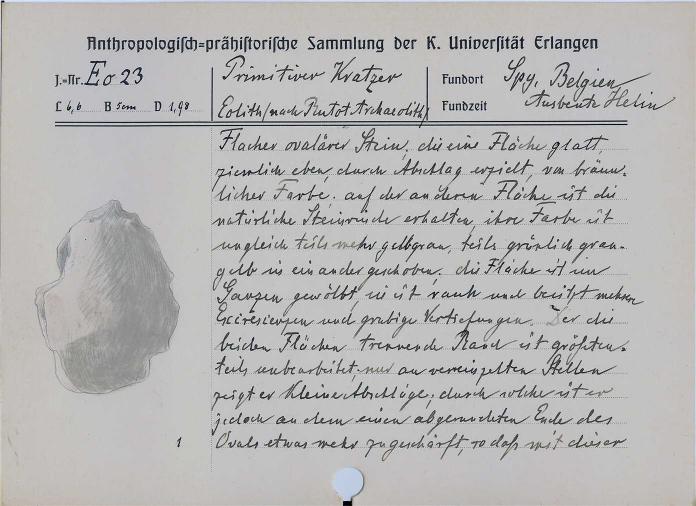 Anthropologisch-prähistorische Sammlung der K. Universität Erlangen
J.-Nr. Eo 23
Primitiver Kratzer
Fundort Spy, Belgien
L 6,6 B 5cm D 1,98
Eolith (nach Rutot Archaeolith)
Fundzeit Ausbeute Helin
Flacher ovalärer Stein, die eine Fläche glatt,
ziemlich eben, durch Abschlag erzielt, von bräun-
licher Farbe; auf der anderen Fläche ist die
natürliche Steinrinde erhalten, ihre Farbe ist
ungleich teils mehr gelbgrau, teils grünlich grau-
gelb in einander geschoben. die Fläche ist im
Ganzen gewölbt, sie ist rauh und besitzt mehrere
Excrescenzen und grubige Vertiefungen. Der die
beiden Flächen trennende Rand ist größten-
teils unbearbeitet, nur an vereinzelten Stellen
zeigt er kleine Abschläge; durch solche ist er
jedoch an dem einen abgerundeten Ende des
Ovals etwas mehr zugeschärft, so daß mit dieser
1